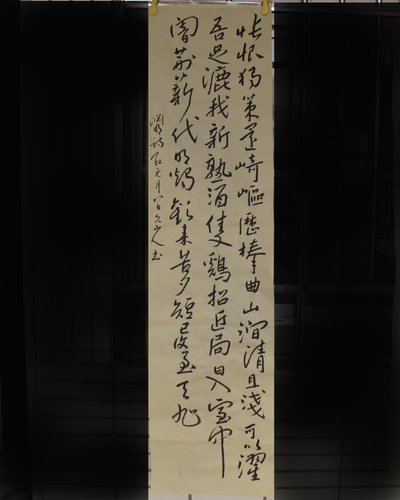 悵恨獨策還崎嶇歷榛曲山澗清且淺可以濯
吾足漉我新熟酒隻鷄招近局日入室中
闇荊薪代明燭歡来苦夕短已復至天旭
淵明詩 元月 山人書